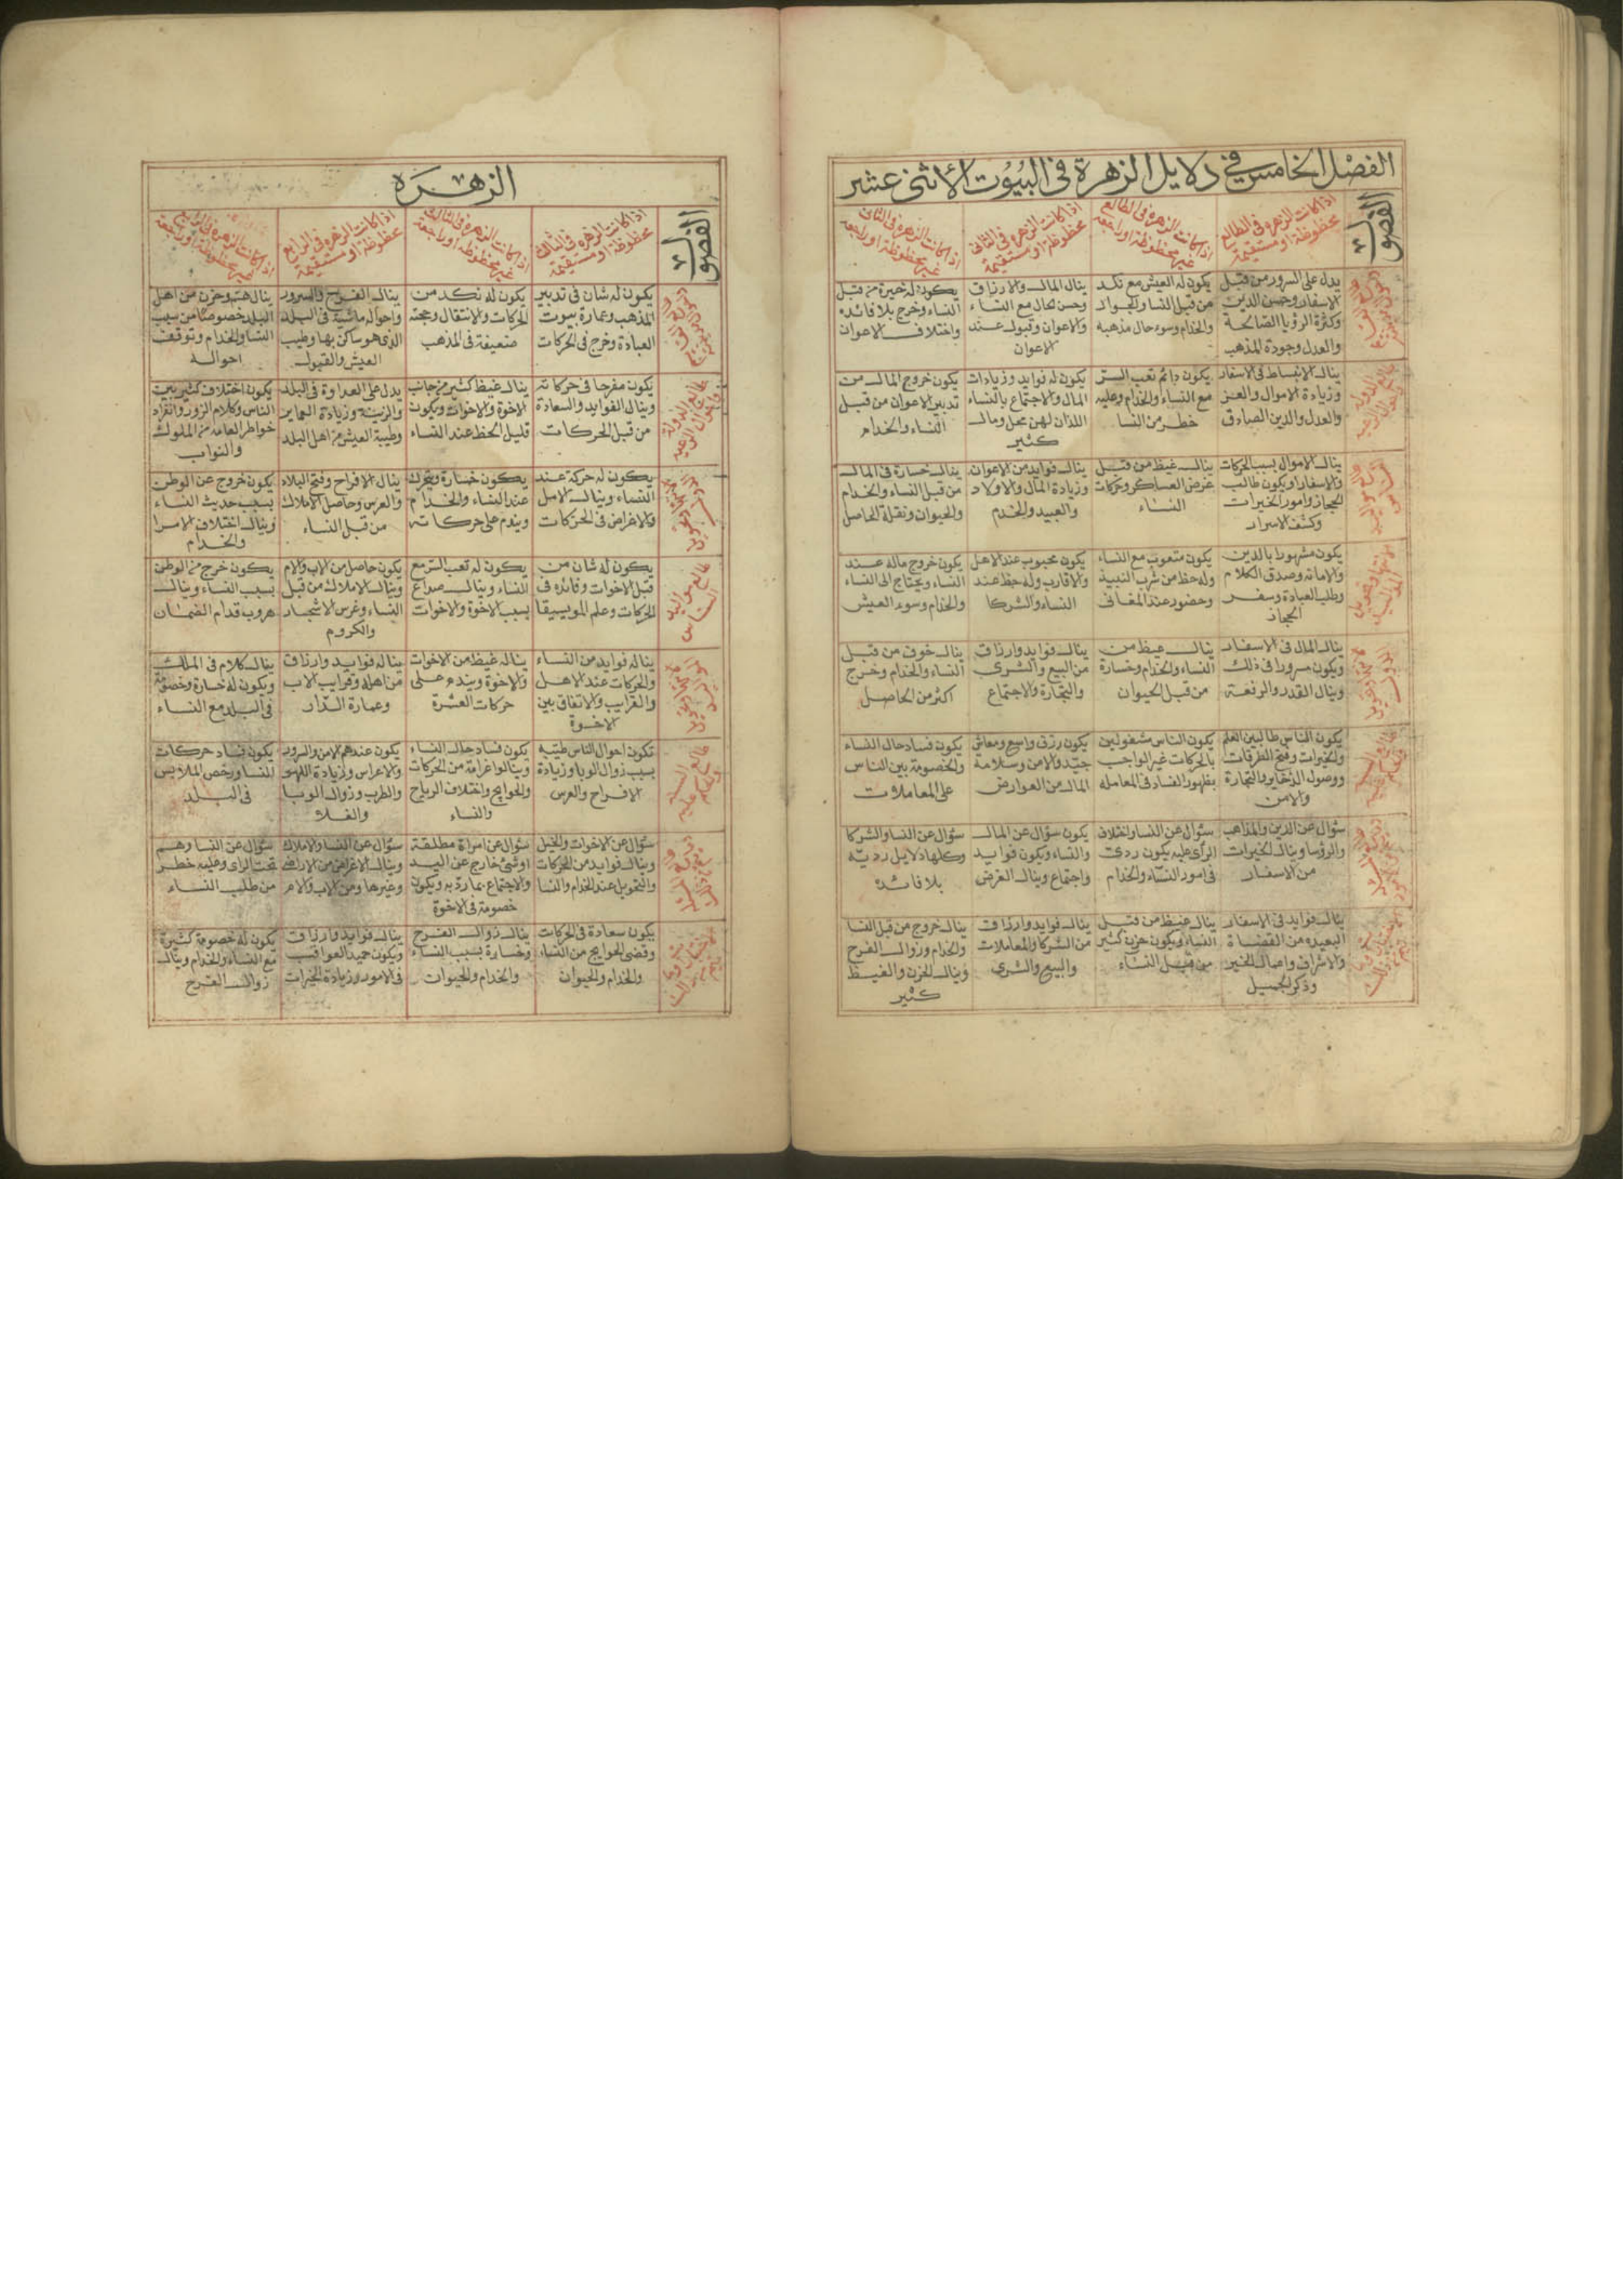 الفصل الخامس في دلايل الزهرة في البيوت الاثنى عشر
الفصول
اذا كانت الزهره في الطالع
محظوظة او مستقيمة
اذا كانت الزهره في الطالع
غير محظوظة او راجعة
اذا كانت الزهره في الثانى
محظوظة او مستقيمة
اذا كانت الزهره في الثانى
غير محظوظة او راجعة
يدل على السرور من قبل
الاسفار وحسن الدين
وكثرة الرؤيا الصالحة
والعدل وجودة المذهب
يكون له العيش مع نكد
من قبل النسا والجوار
والخدام وسوء حال مذهبه
ينال المال والارزاق
وحسن الحال مع النساء
والاعوان وقبول عند
الاعوان
يكون له خيرة من قبل
النساء وخرج بلا فائده
واختلاف الاعوان
ينال الانبساط في الاسفار
وزيادة الاموال والعز
والعدل والدين الصادق
يكون دائم تعب السر
مع النساء والخدام وعليه
خطر من النسا
يكون له فوايد وزيادات
المال والاجتماع بالنساء
اللذان لهن محل ومال
كثير
يكون خروج المال من
تدبير الاعوان من قبل
النساء والخدام
ينال الاموال بسبب الحركات
والاسفار او يكون طالب
الحجاز وامور الخيرات
وكشف الاسرار
ينال غيظ من قبل
عرض العساكر وحركات
النساء
ينال فوايد من الاعوان
وزيادة المال والاولاد
والعبيد والخدم
ينال خسارة في المال
من قبل النساء والخدام
والحيوان ونقلة الحاصل
يكون مشهورا بالدين
والامانه وصدق الكلام
وطلب العبادة وسفر
الحجاز
يكون متعوب مع النساء
وله حظ من شرب النبيذ
وحضور عند المغانى
يكون محبوب عند الاهل
والاقارب وله حظ عند
النساء والشركا
يكون خروج ماله عند
النساء ويحتاج الى النساء
والخدام وسوء العيش
ينال المال في الاسفار
ويكون مسرورا في ذلك
وينال القدر والرفعة
ينال غيظ من
النساء والخدام وخسارة
من قبل الحيوان
ينال فوايد وارزاق
من البيع والشرى
والتجارة والاجتماع
ينال خوف من قبل
النساء والخدام وخرج
اكثر من الحاصل
يكون الناس طالبين العلم
والخيرات وفتح الطرقات
ووصول الذخاير والتجارة
والامن
يكون الناس مشغولين
بالحركات غير الواجب
بظهور الفساد في المعامله
يكون رزق واسع ومعاش
جيد والامن وسلامة
المال من العوارض
يكون فساد حال النساء
والخصومة بين الناس
على المعاملات
سؤال عن الدين والمذاهب
والرؤسا وينال الخيرات
من الاسفار
سؤال عن النسا واختلاف
الراى عليه يكون ردى
في امور النساء والخدام
يكون سؤال عن المال
والنساء ويكون فوايد
واجتماع وينال الغرض
سؤال عن النسا والشركا
وكلها دلايل رديه
بلا فائده
ينال فوايد في الاسفار
البعيده من القضاة
والاشراف واعمال الخير
وذكر الجميل
ينال غيظ من قبل
النساء ويكون حزن كثير
من قبل النساء
ينال فوايد وارزاق
من الشركا والمعاملات
والبيع والشرى
ينال خروج من قبل النسا
والخدام وزوال الفرح
وينال الحزن والغيظ
كثير
الزهره
الفصول
اذا كانت الزهره في الثالث
محظوظة او مستقيمة
اذا كانت الزهره في الثالث
غير محظوظة او راجعة
اذا كانت الزهره في الرابع
محظوظة او مستقيمة
اذا كانت الزهره في الرابع
غير محظوظة او راجعة
يكون له شان في تدبير
المذهب وعمارة بيوت
العبادة وخرج في الحركات
يكون له نكد من
الحركات والانتقال وصحته
ضعيفة في المذهب
ينال الفرح والسرور
واحواله ماشية في البلد
الذى هو ساكن بها وطيب
العيش والقبول
ينال هم وحزن من اهل
البلد خصوصًا من سبب
النسا والخدام وتوقيف
احواله
يكون مفرحا في حركاته
وينال الفوايد والسعادة
من قبل الحركات
ينال غيظ كثير من جانب
الاخوة والاخوات ويكون
قليل الحظ عند النساء
يدل على العداوة في البلد
والزينة وزيادة العماير
وطيبة العيش من اهل البلد
يكون اختلاف كثير بين
الناس وكلام الزور وانفراد
خواطر العامه من الملوك
والنواب
يكون له حركة عند
النساء وينال الامل
والاغراض في الحركات
يكون خسارة ويتحرك
عند النساء والخدام
ويندم على حركاته
ينال الافراح وفتح البلاد
والعرس وحاصل الاملاك
من قبل النساء
يكون خروج عن الوطن
بسبب حديث النساء
وينال اختلاف الامرا
والخدام
يكون له شان من
قبل الاخوات وفائده في
الحركات وعلم الموسيقا
يكون له تعب السر مع
النساء وينال صداع
بسبب الاخوة والاخوات
يكون حاصل من الاب والام
وينال الاملاك من قبل
النساء وغرس الاشجار
والكروم
يكون خرج من الوطن
بسبب النساء وينال
هروب قدام الضمان
يناله فوايد من النساء
والحركات عند الاهل
والقرايب والاتفاق بين
الاخوة
يناله غيظ من الاخوات
والاخوة ويندم على
حركات العشرة
يناله فوايد وارزاق
من اهله وقرايب الاب
وعمارة الدار
ينال كلام في الملك
ويكون له خسارة وخصومة
في البلد مع النساء
تكون احوال الناس طيبه
بسبب زوال الوبا وزيادة
الافراح والعرس
يكون فساد حال النساء
وينالوا غرامة من الحركات
والحوايج واختلاف الرياح
والنساء
يكون عندهم الامن والسرور
والاعراس وزيادة اللهو
والطرب وزوال الوبا
والغلا
يكون فساد حركات
النسا ورخص الملابس
في البلد
سؤال عن الاخوات والخيل
وينال فوايد من الحركات
والتحويل عند الخدام والنسا
سؤال عن امراة مطلقة
او شئ خارج عن اليد
والاجتماع بها رديه ويكون
خصومة في الاخوة
سؤال عن النسا والاملاك
وينال الاغراض من الاراضى
وغيرها ومن الاب والام
سؤال عن النسا وهم
تحت الراى وعليه خطر
من طلب النساء
يكون سعادة في الحركات
وقضى الحوايج من النساء
والخدام والحيوان
ينال زوال الفرح
وخسارة بسبب النساء
والخدام والحيوات
ينال فوايد وارزاق
ويكون حميد العواقب
في الامور وزيادة الخيرات
يكون له خصومة كثيرة
مع النساء والخدام وينال
زوال الفرح